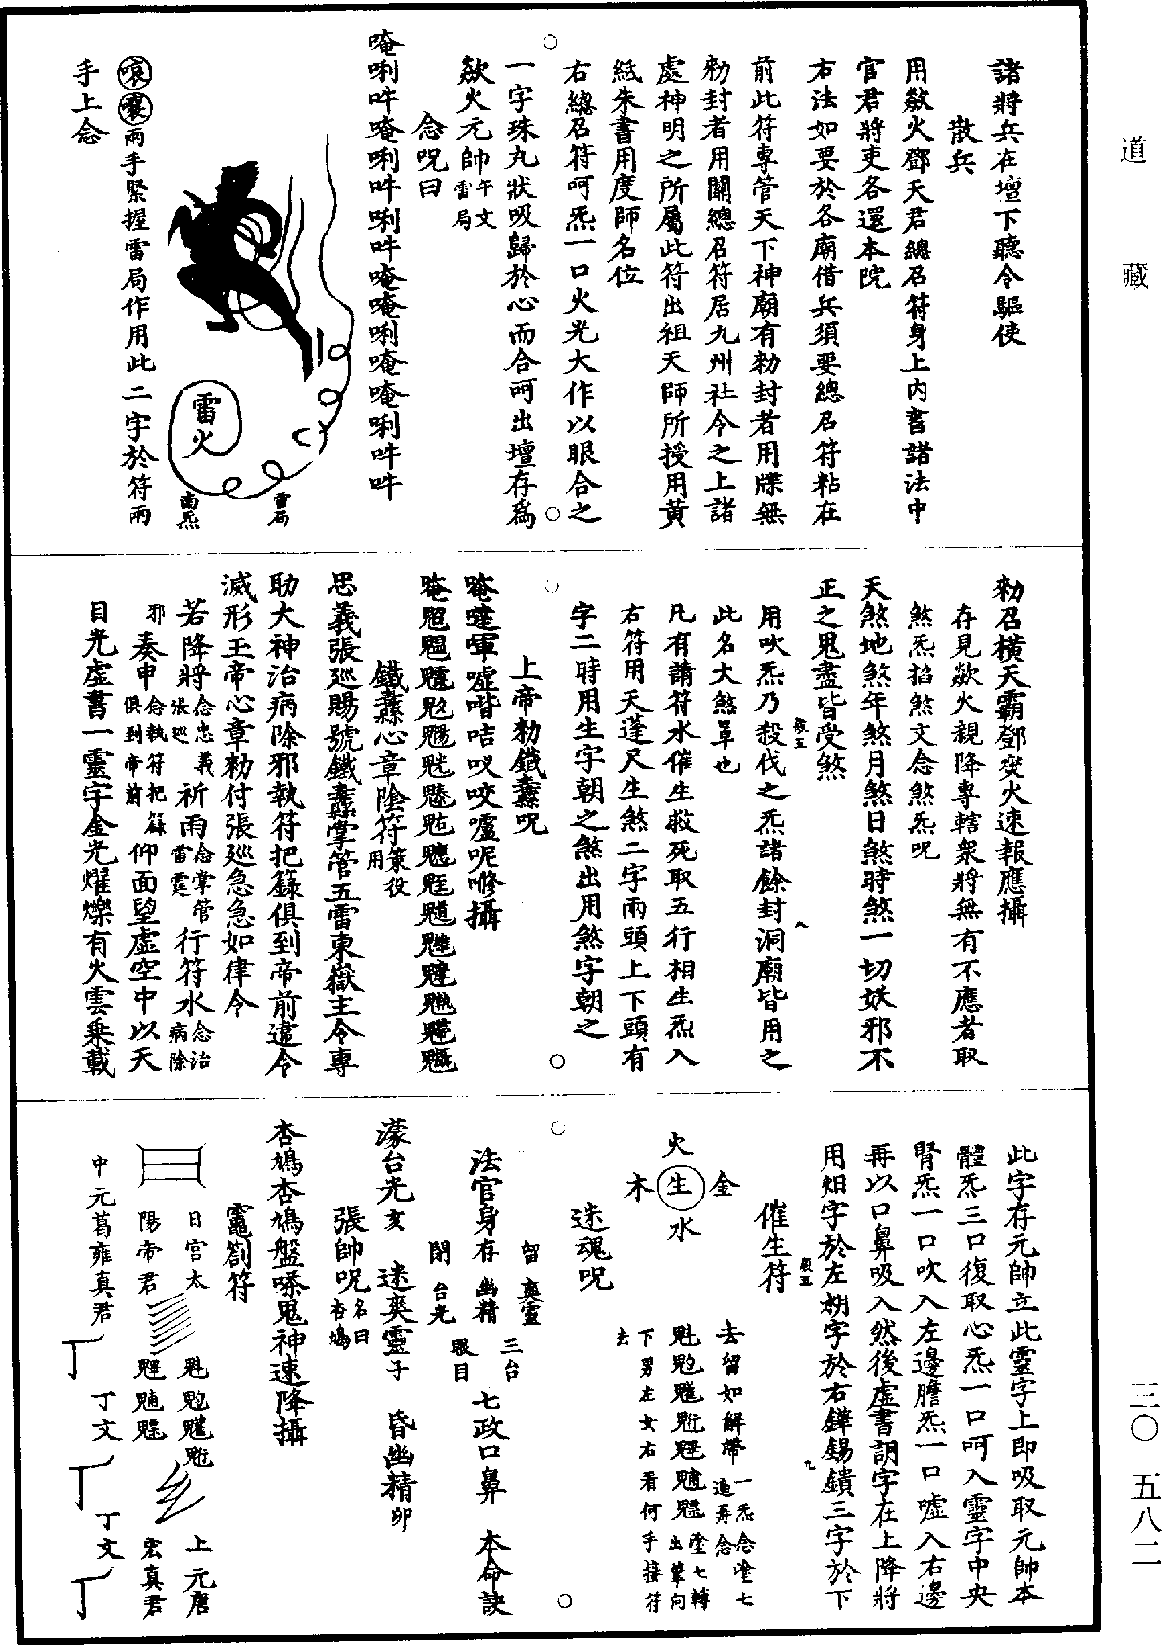 道藏
諸將兵在壇下聽令驅使
散兵
用欻火鄧天君總召符身上内書諸法中
官君將吏各還本院
右法如要於各廟借兵須要總召符粘在
前此符專管天下神廟有勑封者用牒無
勑封者用關總召符居九州社令之上諸
處神明之所屬此符出祖天師所授用黃
紙朱書用度師名位
右總召符呵炁一口火光大作以眼合之
一字珠丸狀吸歸於心而合呵出壇存爲
欻火元帥午文雷局
念咒曰
唵唎吽唵唎吽唎吽唵唵唎唵唵唎吽吽
雷火
雷局
南炁
兩手緊握雷局作用此二字於符兩
手上念
勑召橫天霸鄧奕火速報應攝
存見欻火親降專轄衆將無有不應者取
煞炁掐煞文念煞炁呪
天煞地煞年煞月煞日煞時煞一切妖邪不
正之鬼盡皆受煞
用吹炁乃殺伐之炁諸餘封洞廟皆用之
此名大煞罩也
凡有請符水催生救死取五行相生炁入
右符用天蓬尺生煞二字兩頭上下頭有
字二時用生字朝之煞出用煞字朝之
上帝勑鐵纛呪
鐵纛心章陰符策役用
忠義張巡賜號鐵纛掌管五雷東嶽主令專
助大神治病除邪執符把籙俱到帝前違令
滅形玉帝心章勑付張巡急急如律令
若降將念忠義張巡祈雨念掌管雷霆行符水念治病除
邪奏申念執符把籙俱到帝前仰面望虛空中以天
目光虛書一靈字金光燿爍有火雲乘載
此字存元帥立此靈字上即吸取元帥本
體炁三口復取心炁一口呵入靈字中央
腎炁一口吹入左邊膽炁一口噓入右邊
再以口鼻吸入然後虛書詷字在上降將
用字於左字於右鏵錫鐼三字於下
催生符
火
金
生
木
水
去留如解帶一炁念
下男左女右看何手接符
去
迷魂呪
留爽靈
三台
法官身存幽精
眼目
七政口鼻
本命訣
閉台光
濛台光亥
迷爽靈子
昏幽精卯
張帥呪名曰杏鳩
杏鳩杏鳩盤嗏鬼神速降攝
靈劄符
日宮太
陽帝君
上元唐
宏真君
中元葛雍真君
丁文
丁文
三〇
五八二